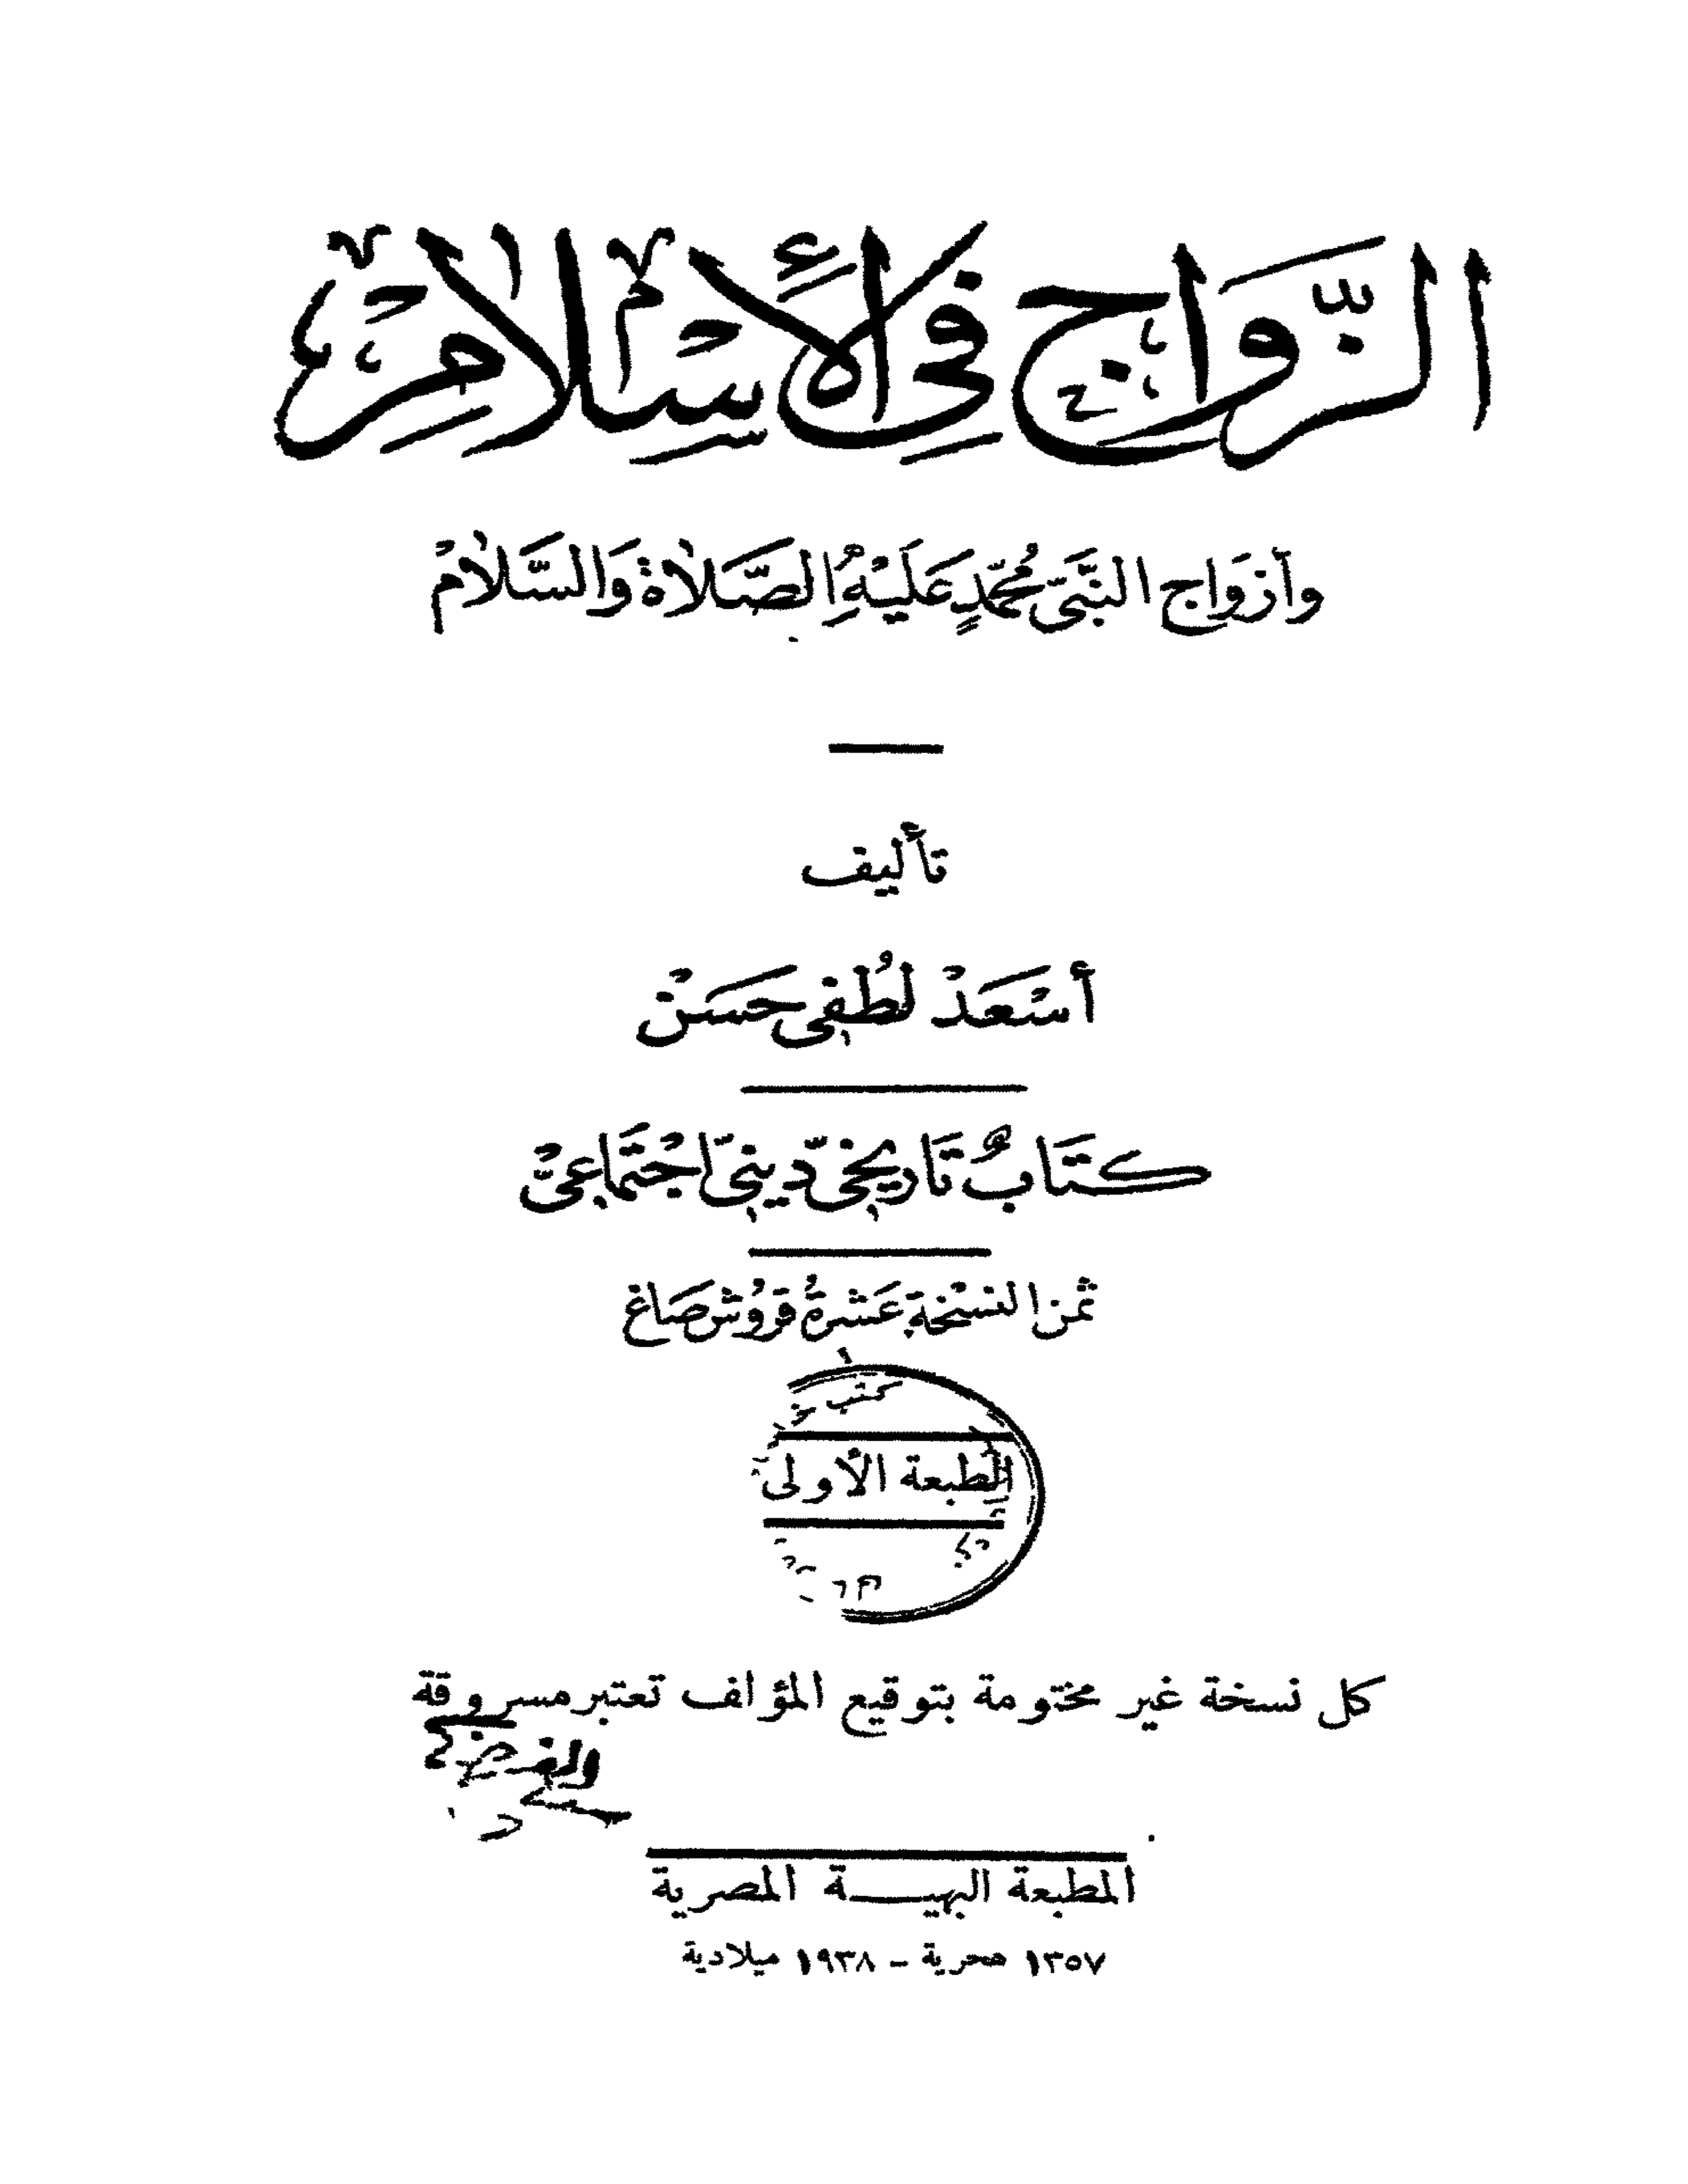 الزَّوَاج فِي الْإِسْلَامِ
وأزوَاج النَّبَىّ مُحَمَّدٍ عَلَيْهِ الصَّلَاةُ وَالسَّلَامُ
تأليف
أسْعَدْ لُطْفِى حَسَنْ
كِتَابٌ تَارِيخِىّ دِّينِىّ اجْتِمَاعِىّ
ثمن النسْخَةِ عَشرَةُ قرُوُش صَاغ
الطبعة الأولى
كل نسخة غير مختومة بتوقيع المؤلف تعتبر مسروقة
المطبعة البهيـــة المصرية
١٣٥٧ هجرية – ١٩٣٨ ميلادية